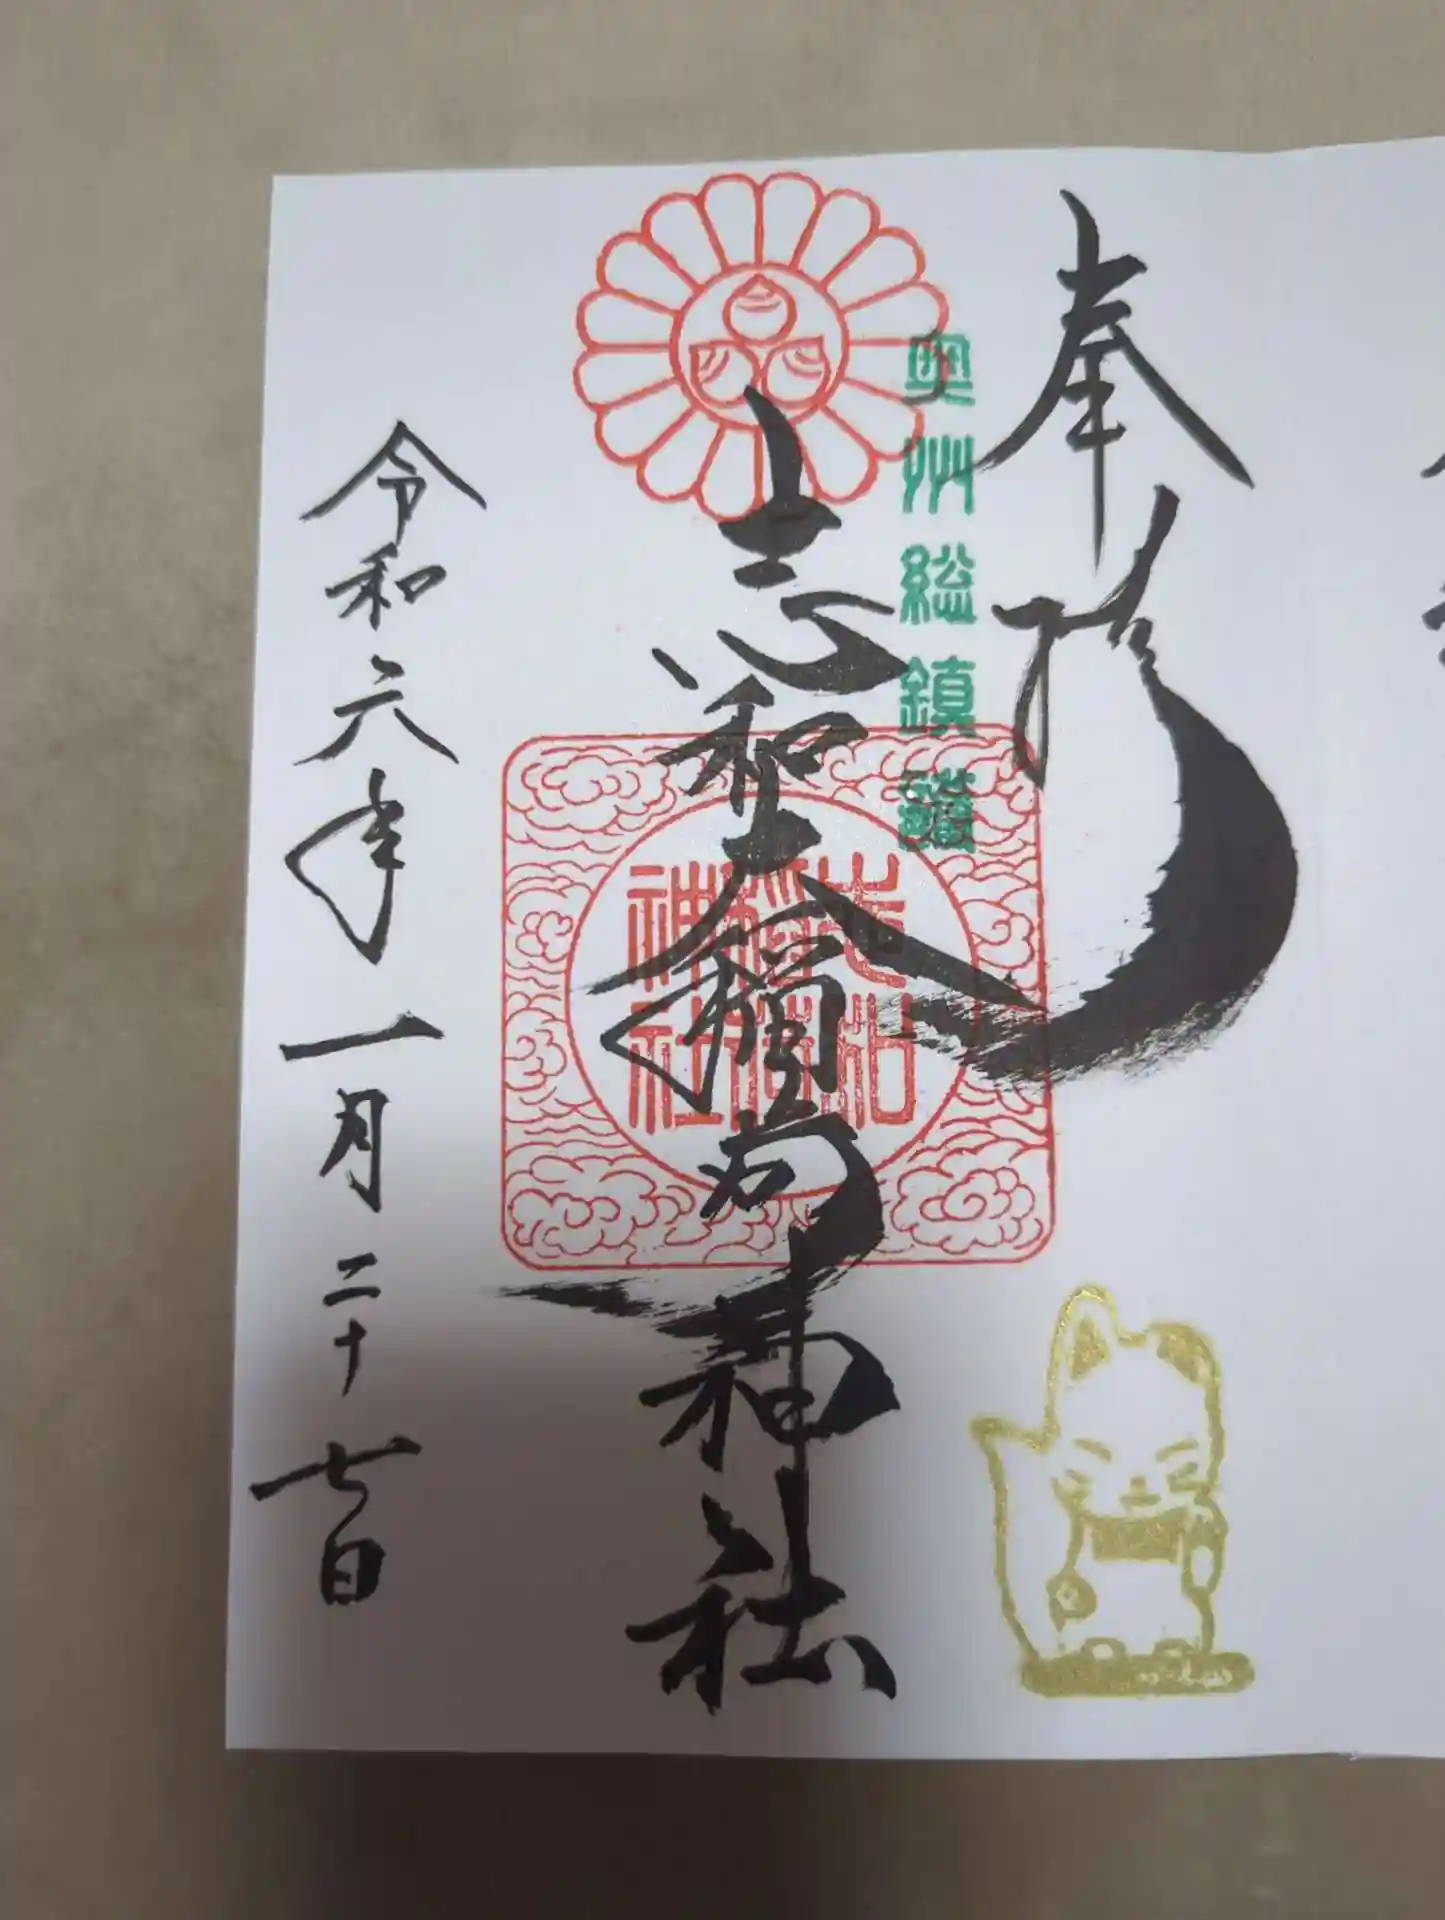 奉拝
奥州総鎮護
志和大稲荷神社
志和
稲荷
神社
令和六年一月二十七日